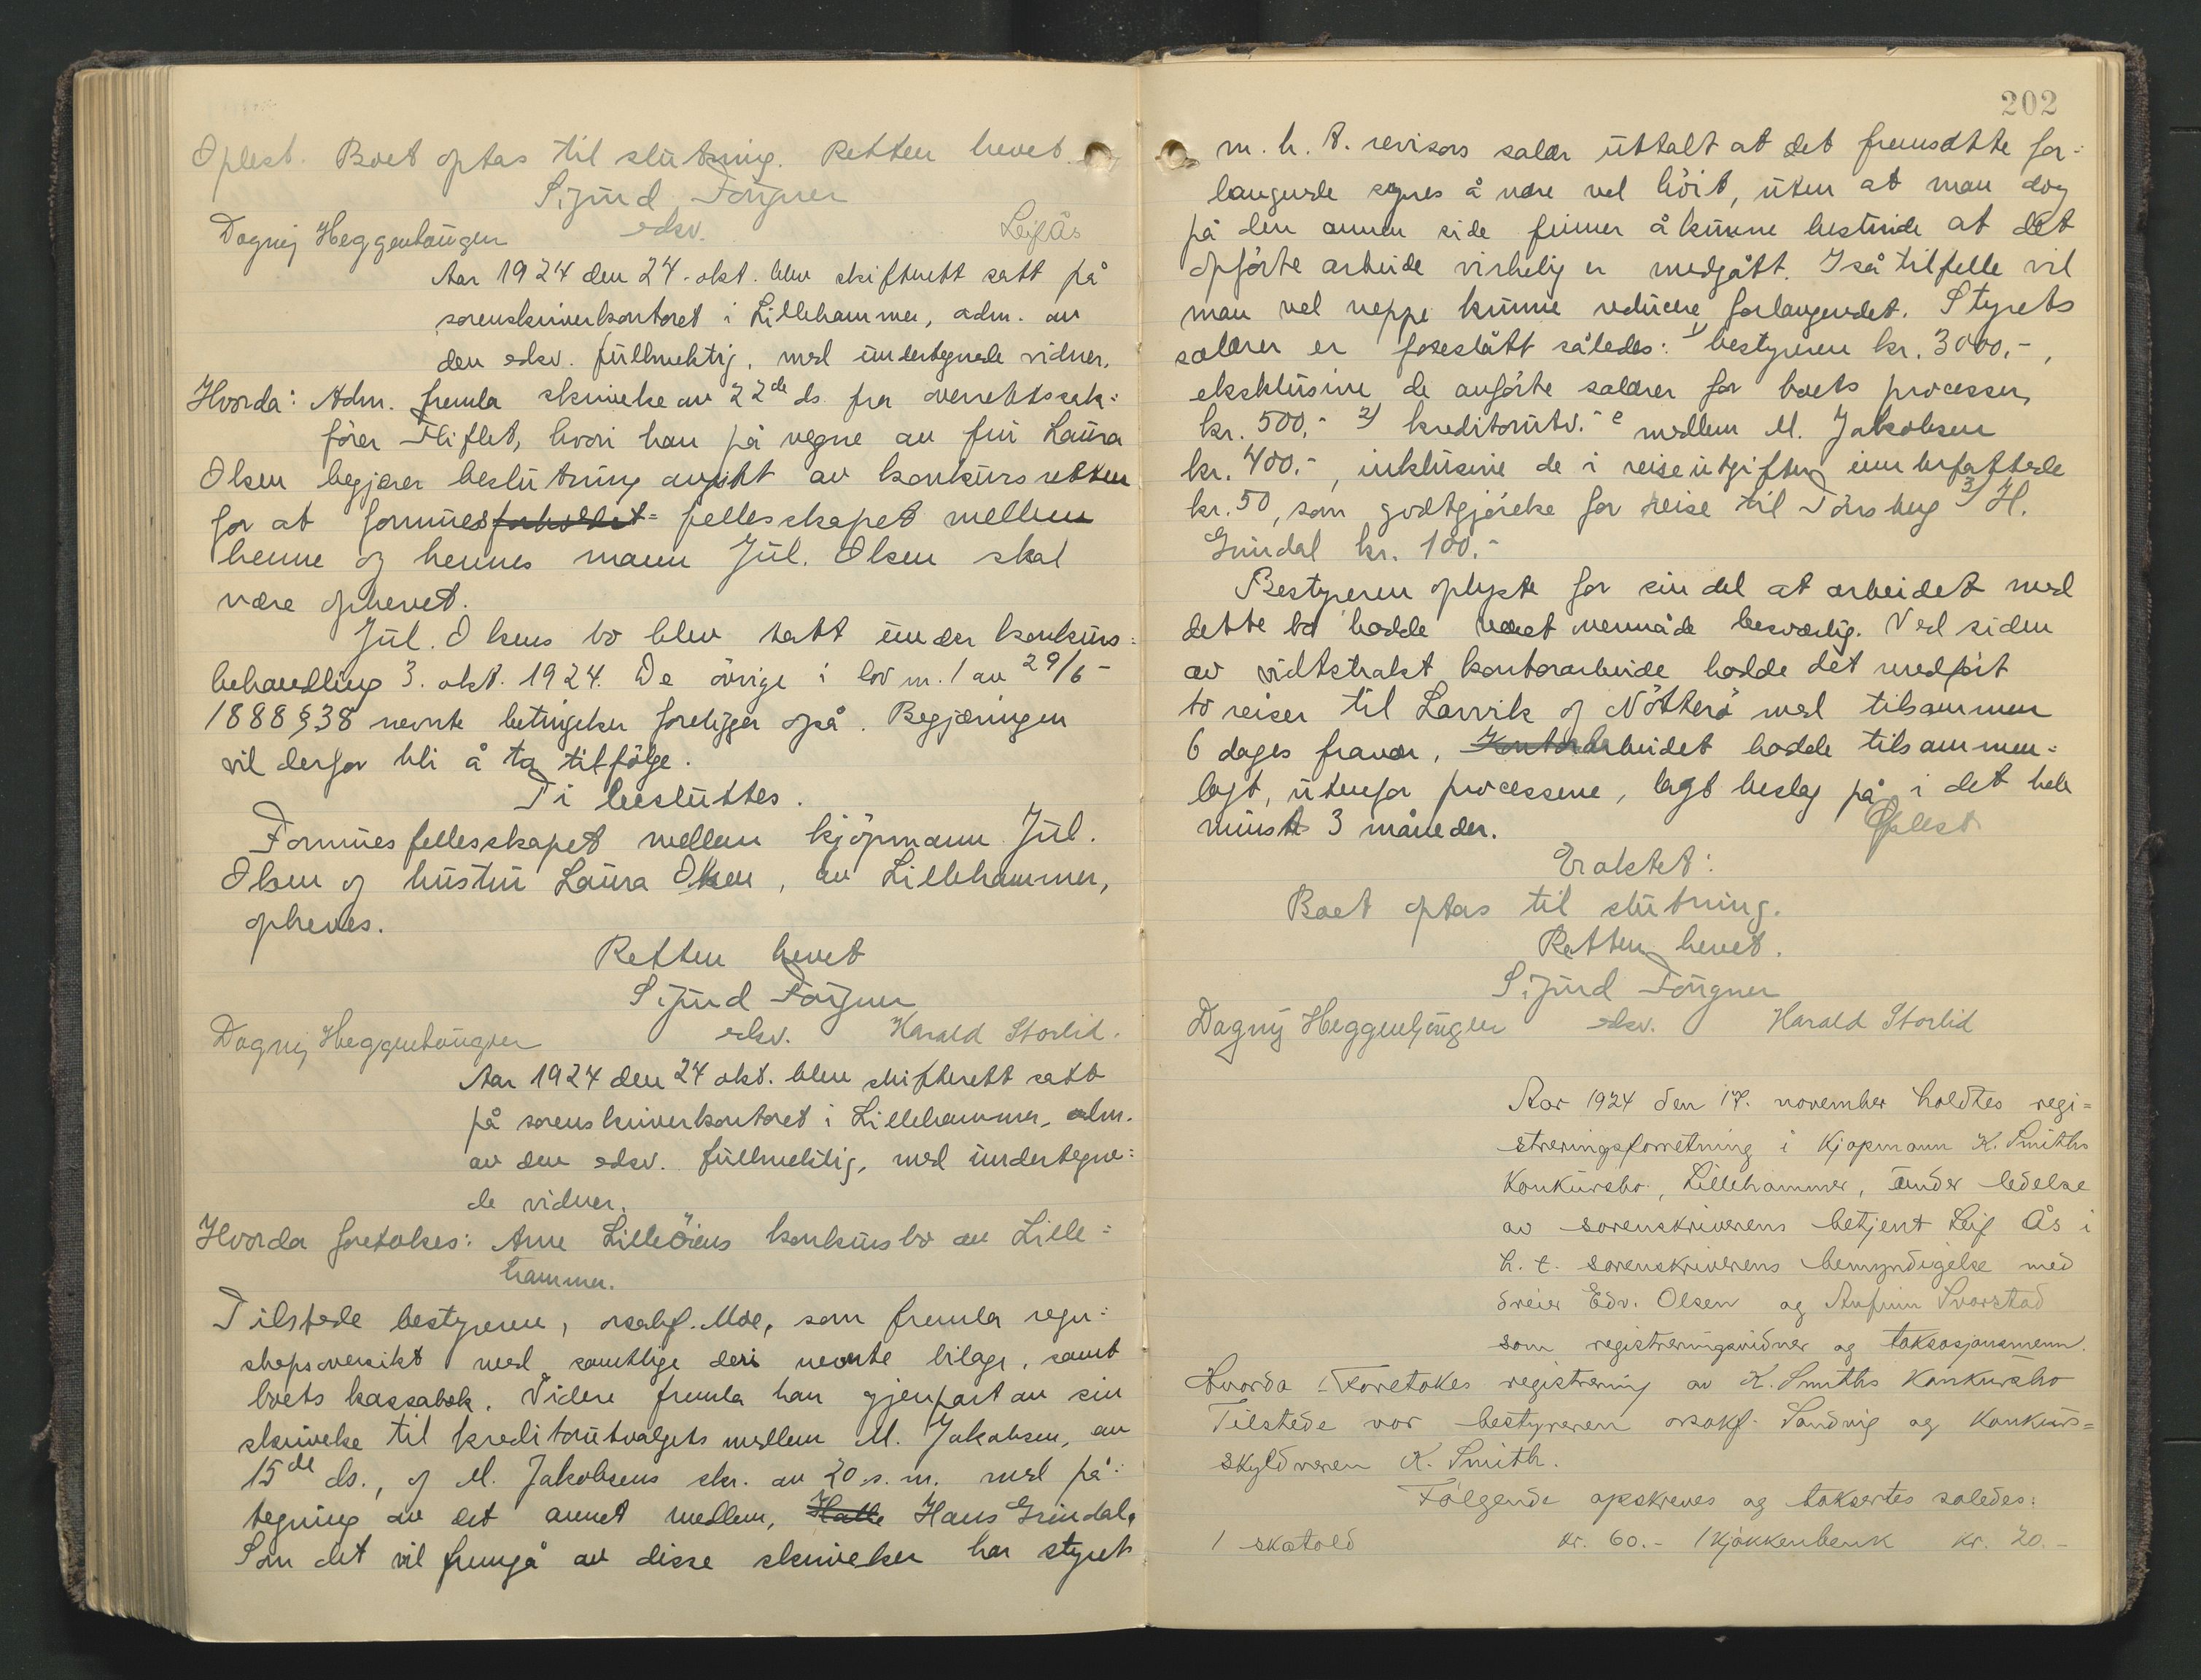 Oplest. Boet optas til slutning. Retten hevet.
Sigurd Fougner
Dagny Heggenhaugen edsv. Leif Ås
Aar 1924 den 24. okt. blev skifterett satt på
sorenskriverkontoret i Lillehammer, adm. av
den edsv. fullmektig, med undertegnede vidner.
Hvorda: Adm. fremla skrivelse av 22de ds. fra overrettssak-
fører Fliflet, hvori han på vegne av fru Laura
Olsen begjærer beslutning avsikt av konkursretten
for at formues forholdet- fellesskapet mellem
henne og hennes mann Jul. Olsen skal
være ophevet.
Jul. Olsens bo blev tatt under konkurs-
behandling 3. okt. 1924. De øvrige i lov nr. 1 av 29/6-
1888 § 38 nevnte betingelser foreligger også. Begjæringen
vil derfor bli å ta tilfølge.
Ti besluttes.
Formuesfellesskapet mellem kjøpmann Jul.
Olsen og hustru Laura Olsen, av Lillehammer,
opheves.
Retten hevet
Sigurd Fougner
Dagny Heggenhaugen edsv. Harald Storlid.
Aar 1924 den 24 okt. blev skifterett satt
på sorenskriverkontoret i Lillehammer, adm.
av den edsv. fullmektig, med undertegne-
de vidner.
Hvorda foretokes: Arne Lilleöiens konkursbo av Lille-
hammer.
Tilstede bestyreren, orsakf. Moe, som fremla regn-
skapsoversikt med samtlige deri nevnte bilage, samt
boets kassabok. Videre fremla han gjenpart av sin
skrivelse til kreditorutvalgets medlem M. Jakobsen, av
15de ds., og M. Jakobsens skr. av 20. s. m. med på-
tegning av det annet medlem, Halle Hans Grindal.
Som det vil fremgå av disse skrivelser har styret
202
m. h. t. revisors salær uttalt at det fremsatte for-
langende synes å være vel höit, uten at man dog
på den annen side finner å kunne bestride at det
opförte arbeide virkelig er medgått. I så tilfelle vil
man vel neppe kunne reducere forlangendet. Styrets
salærer er foreslått således: 1/ bestyreren kr. 3000,-,
eksklusive de anförte salærer for boets processer,
kr. 500,- 2/ kreditorutv.'s medlem M. Jakobsen
kr. 400.-, inklusive de i reiseutgifter innbefattede
kr. 50, som godtgjörelse for reise til Tönsberg 3/ H.
Grindal kr. 100.-
Bestyreren oplyste for sin del at arbeidet med
dette bo hadde været overmåde besværlig. Ved siden
av vidtstrakt kontorarbeide hadde det medfört
to reiser til Larvik og Nötterö med tilsammen
6 dages fravær. Kontorarbeidet hadde tilsammen-
lagt, utenfor processene, lagt beslag på i det hele
minst 3 måneder. Oplest
Eraktet:
Boet optas til slutning.
Retten hevet.
Sigurd Fougner
Dagny Heggenhaugen edsv. Harald Storlid
Aar 1924 den 17. november holdtes regi=
streringsforretning i Kjøpmann K. Smiths
Konkursbo, Lillehammer, under ledelse
av sorenskriverens betjent Leif Ås i
h. t. sorenskriverens bemyndigelse med
dreier Edv. Olsen og Anfinn Svarstad
som registreringsvidner og taksasjonsmenn.
Hvorda: Foretokes registrering av K. Smiths Konkursbo
Tilstede var bestyreren orsakf. Sandvig og Konkurs=
skyldneren K. Smith.
Følgende opskreves og taksertes således:
1 skatold kr. 60.- 1 kjøkkenbenk kr. 20.-